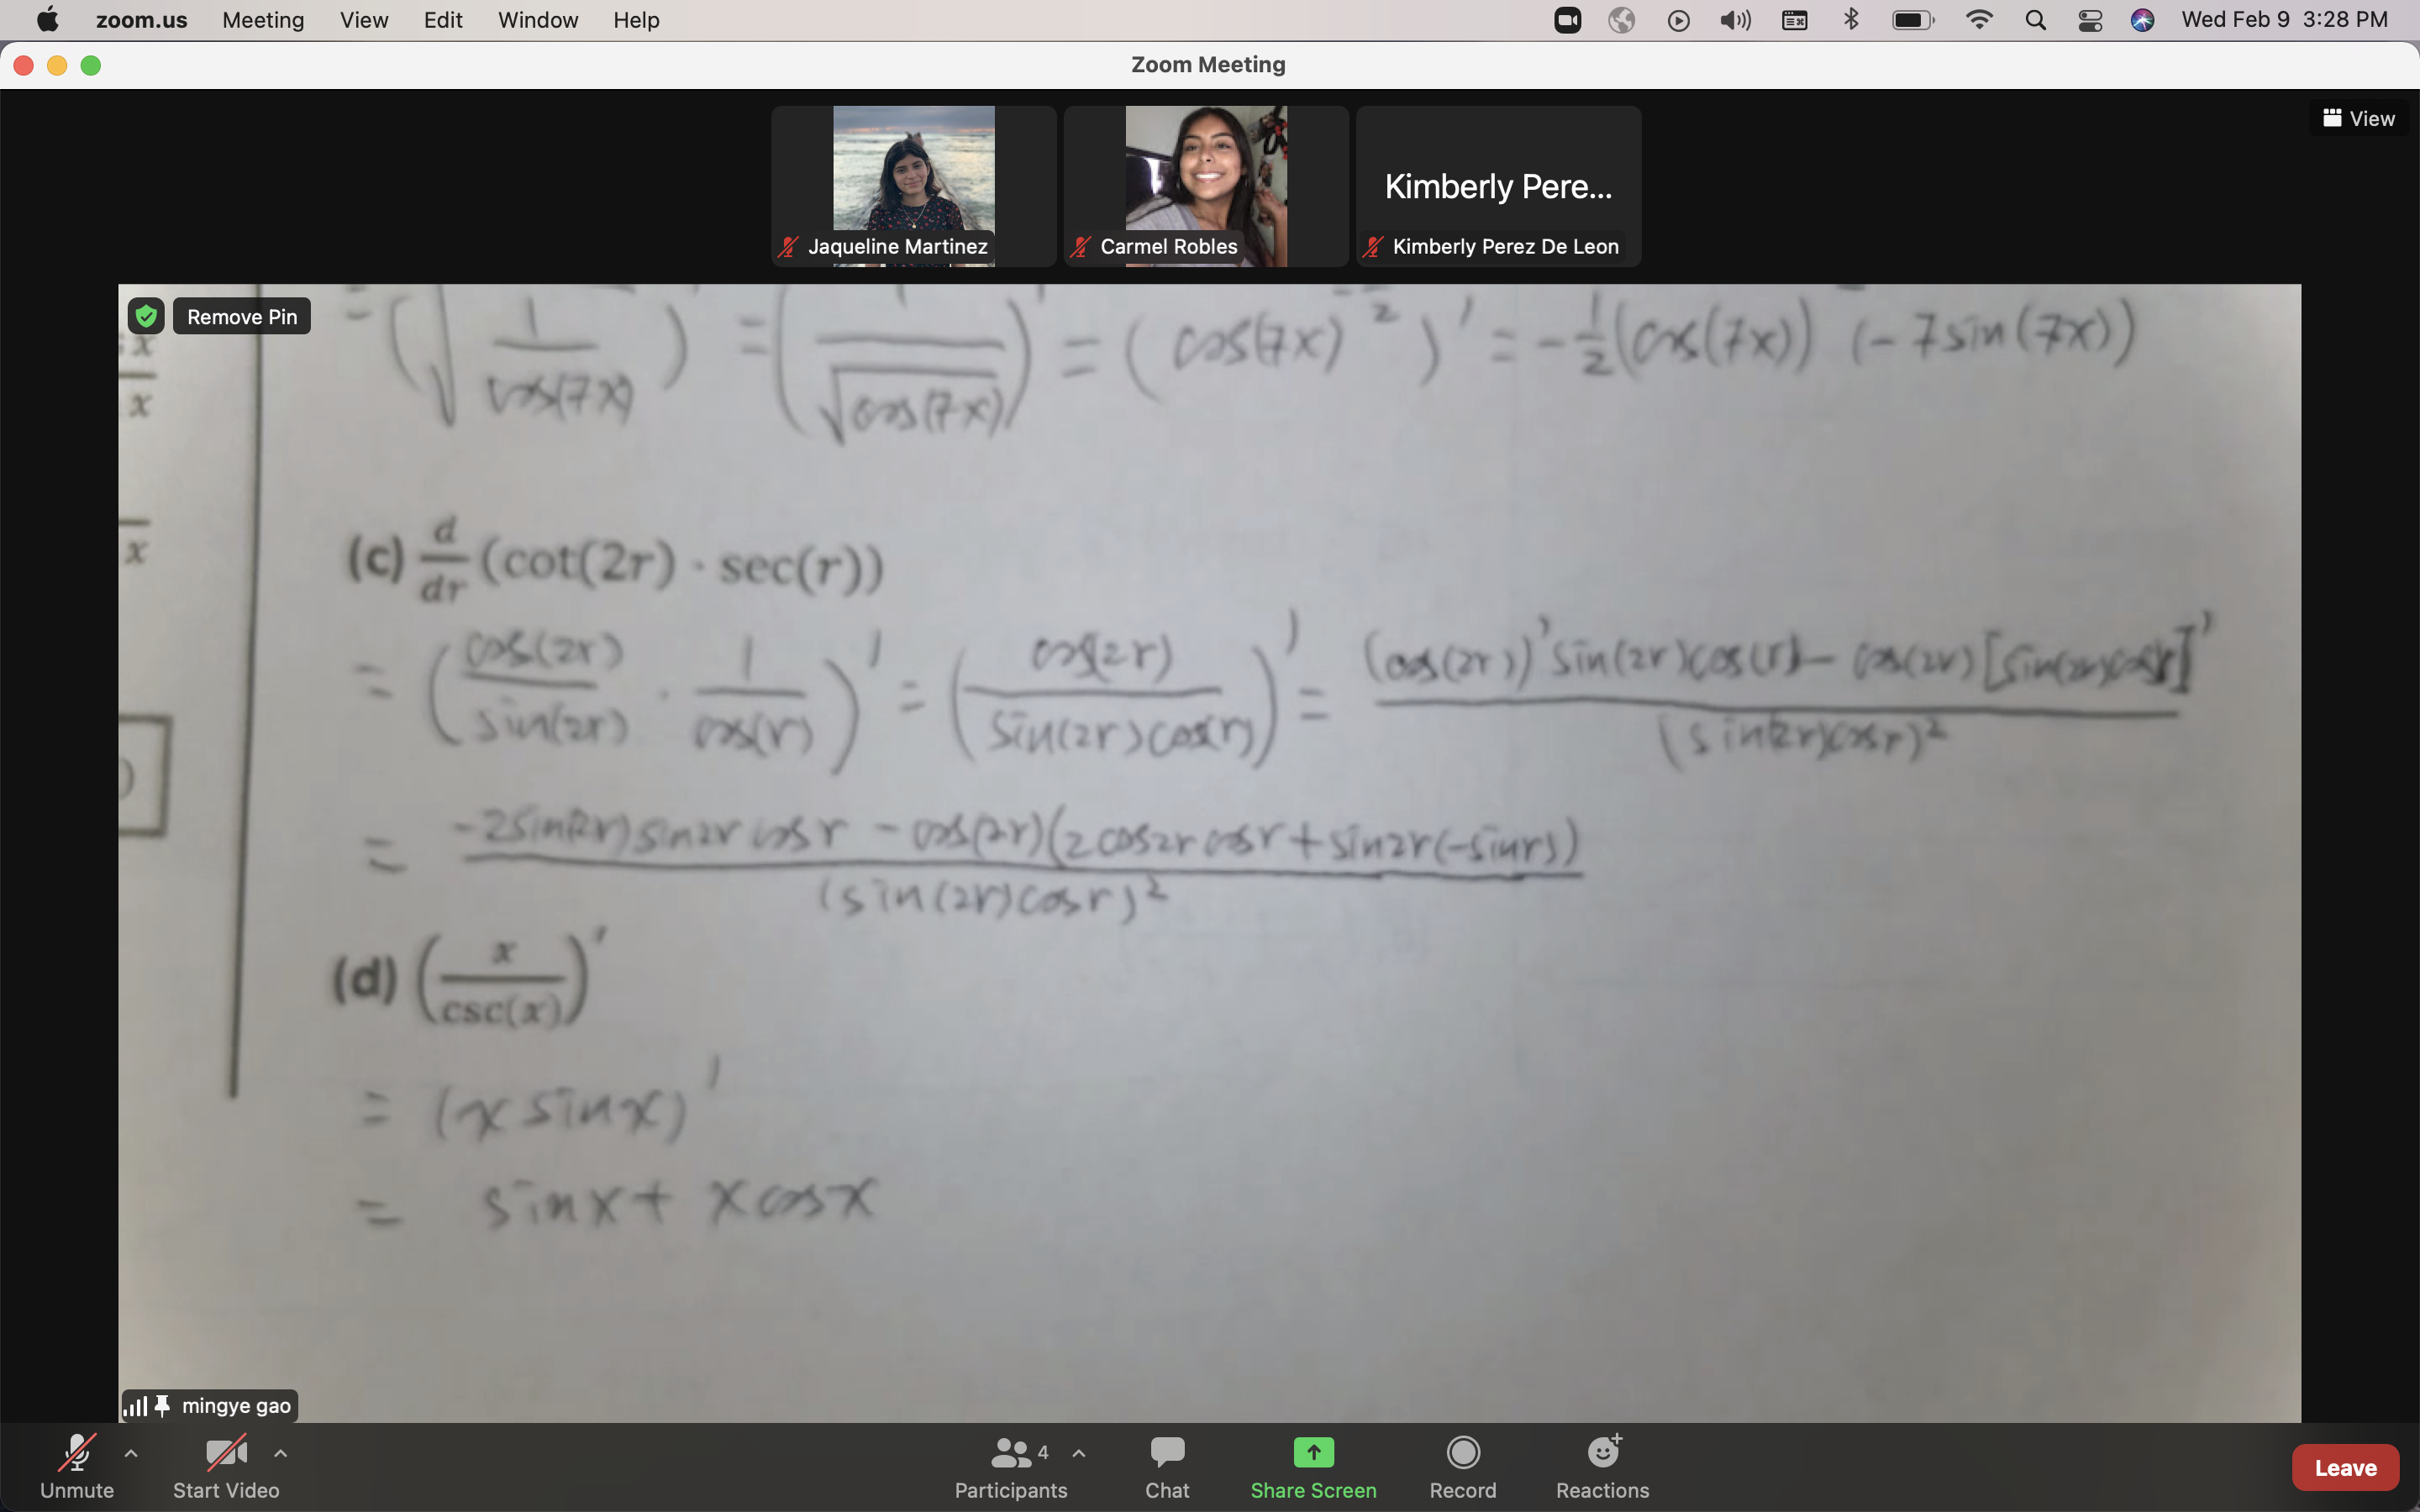 zoom.us Meeting View Edit Window Help Wed Feb 9 3:28 PM
Zoom Meeting
View
Kimberly Pere...
Jaqueline Martinez Carmel Robles Kimberly Perez De Leon
Remove Pin
= (√(1/cos(7x)))' = (1/√cos(7x))' = (cos(7x)^(-1/2))' = -1/2 (cos(7x)) (-7sin(7x))
x
x
x
(c) d/dr (cot(2r) · sec(r))
= (cos(2r)/sin(2r) · 1/cos(r))' = (cos(2r)/(sin(2r)cos(r)))' = ((cos(2r))' sin(2r)cos(r) - cos(2r)[sin(2r)cos r]')/(sin(2r)cos r)²
= (-2sin(2r) sin2r cos r - cos(2r)(2cos2r cos r + sin2r(-sin r)))/(sin(2r)cos r)²
(d) (x/csc(x))'
= (x sin x)'
= sin x + x cos x
mingye gao
4
Unmute Start Video Participants Chat Share Screen Record Reactions Leave